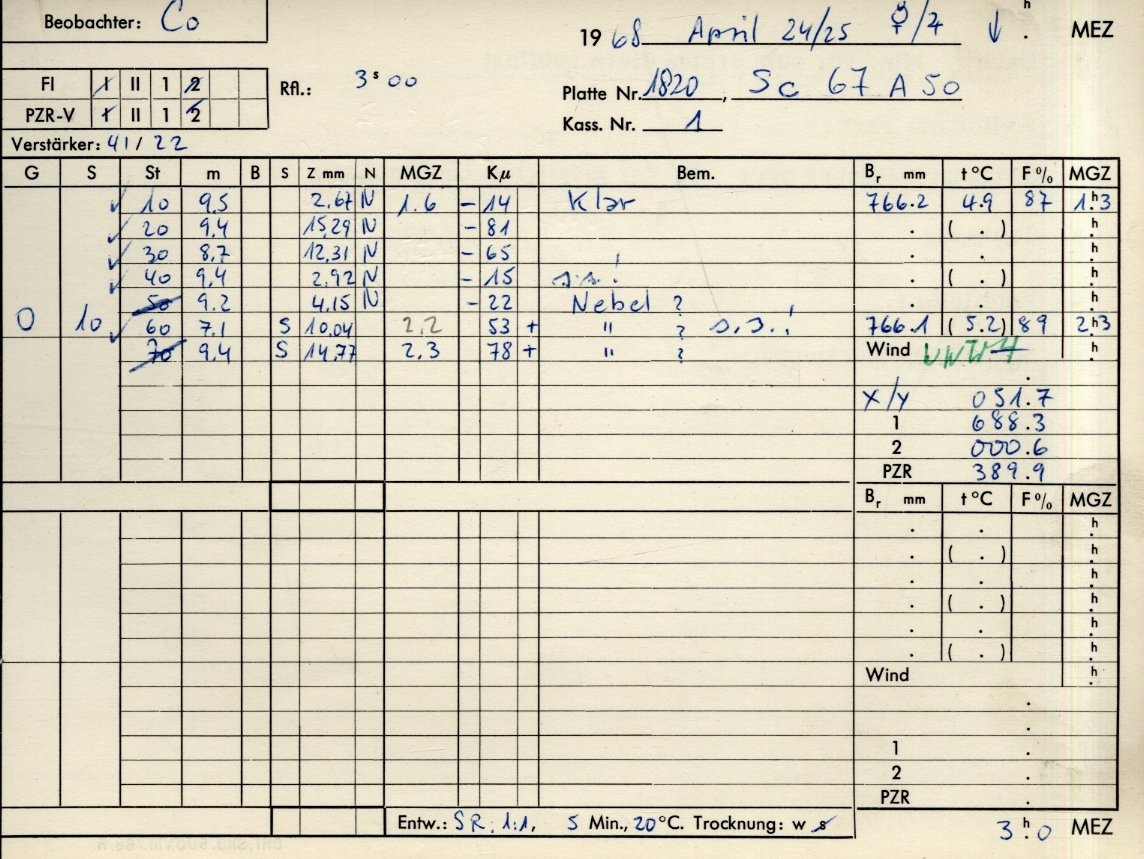 Beobachter: Co
1968 April 24/25 ☿/4 ↓ h . MEZ
FI I II 1 2
PZR-V I II 1 2
Rfl.: 3 s 00
Platte Nr. 1820, Sc 67 A 50
Kass. Nr. 1
Verstärker: 41/22
G S St m B S Z mm N MGZ Kμ Bem. Br mm t °C F % MGZ
✓ 10 9,5 2,67 N 1.6 - 14 Klar 766.2 4.9 87 1h3
✓ 20 9,4 15,29 N - 81 . ( . ) h
✓ 30 8,7 12,31 N - 65 . . h
✓ 40 9,4 2,92 N - 15 . ( . ) h
50 9.2 4,15 N - 22 Nebel ? . . h
0 10 ✓ 60 7,1 S 10,04 2,2 53 + " ? s.s.! 766.1 ( 5.2) 89 2h3
70 9,4 S 14,77 2,3 78 + " ? Wind h
X/Y 051.7
1 688.3
2 000.6
PZR 389.9
Br mm t °C F % MGZ
. . h
. ( . ) h
. . h
. ( . ) h
. . h
. ( . ) h
Wind h
1 .
2 .
PZR .
Entw.: SR: 1:1, 5 Min., 20 °C. Trocknung: w s
3 h 0 MEZ